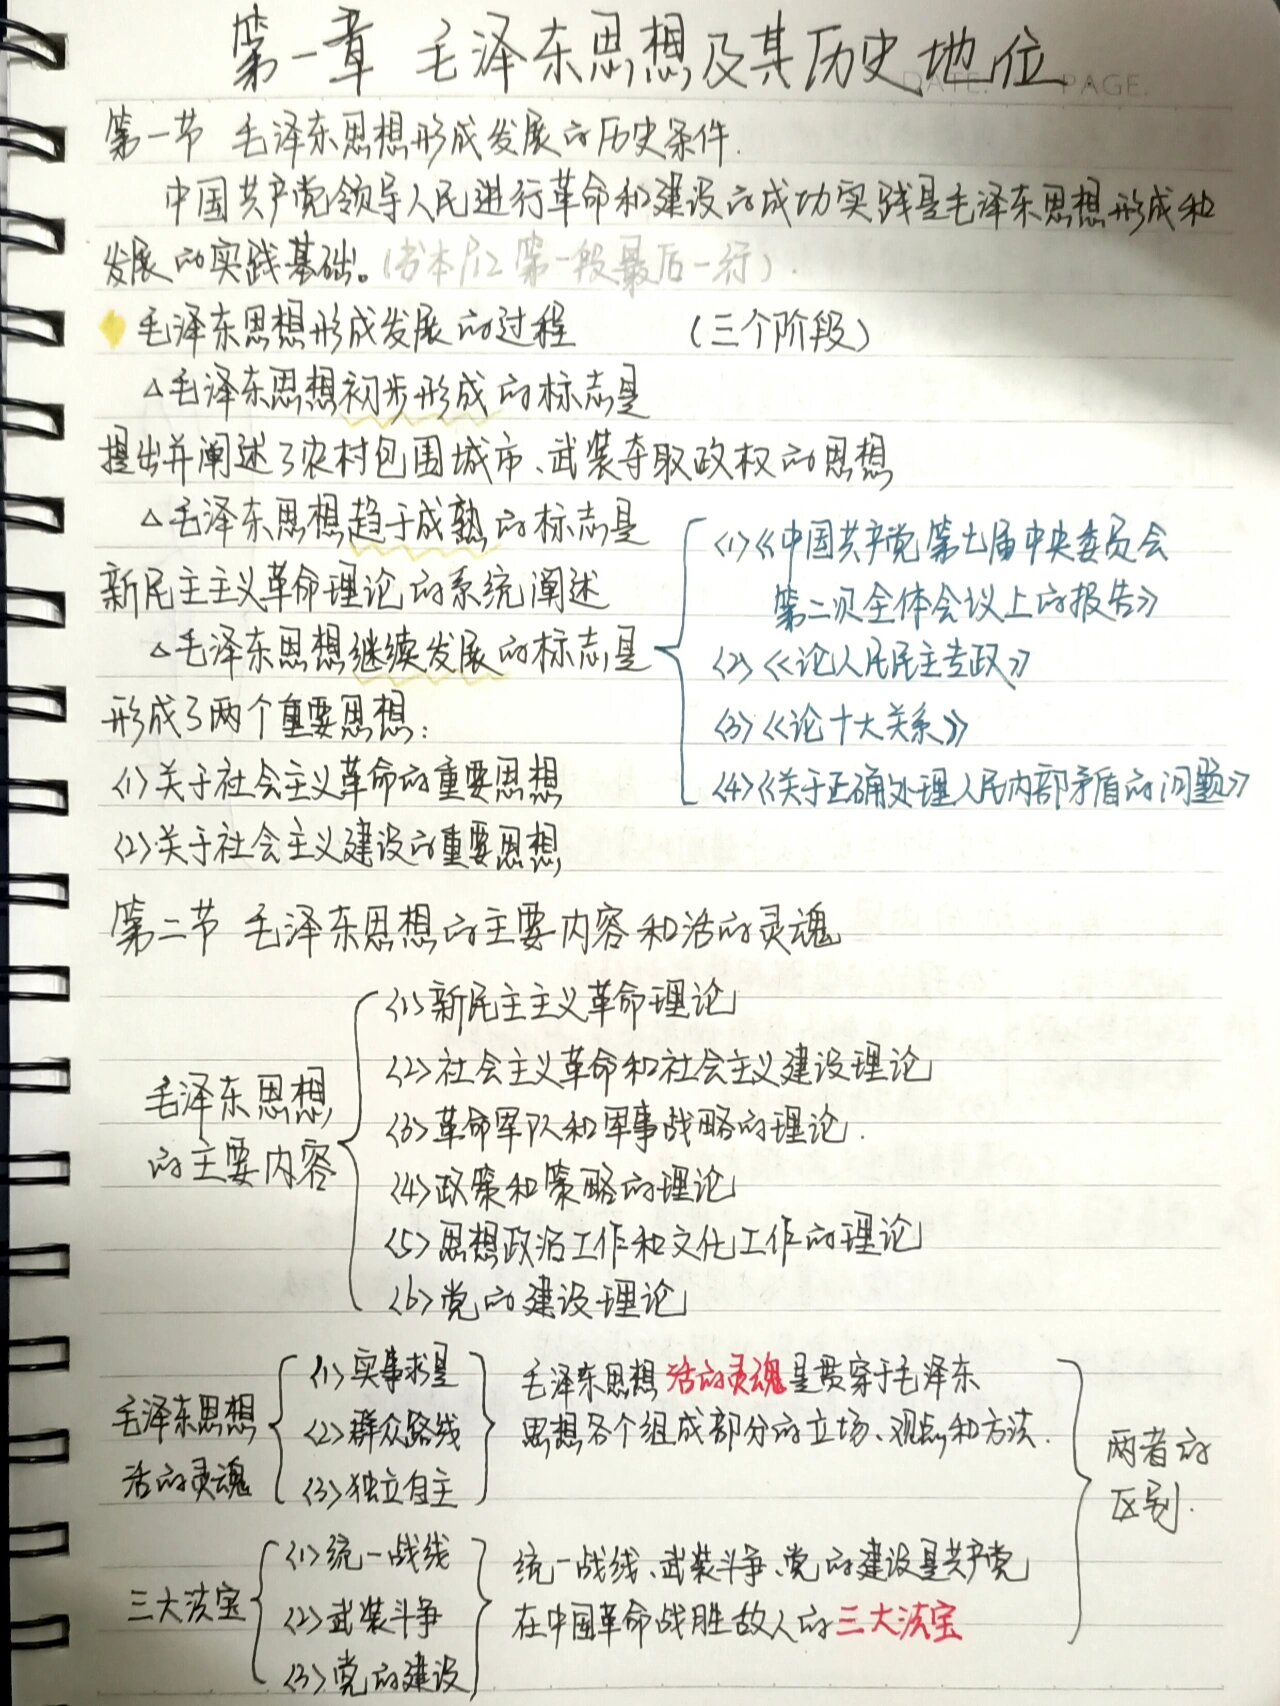 第一章 毛泽东思想及其历史地位
DATE. PAGE.
第一节 毛泽东思想形成发展的历史条件.
中国共产党领导人民进行革命和建设的成功实践是毛泽东思想形成和
发展的实践基础。(书本P12 第一段最后一行).
毛泽东思想形成发展的过程 (三个阶段)
△毛泽东思想初步形成的标志是
提出并阐述了农村包围城市、武装夺取政权的思想
△毛泽东思想趋于成熟的标志是
新民主主义革命理论的系统阐述
△毛泽东思想继续发展的标志是
形成了两个重要思想:
<1>关于社会主义革命的重要思想
<2>关于社会主义建设的重要思想
<1>《中国共产党第七届中央委员会
第二次全体会议上的报告》
<2>《论人民民主专政》
<3>《论十大关系》
<4>《关于正确处理人民内部矛盾的问题》
第二节 毛泽东思想的主要内容和活的灵魂
毛泽东思想
的主要内容
<1>新民主主义革命理论
<2>社会主义革命和社会主义建设理论
<3>革命军队和军事战略的理论.
<4>政策和策略的理论
<5>思想政治工作和文化工作的理论
<6>党的建设理论
毛泽东思想
活的灵魂
<1>实事求是
<2>群众路线
<3>独立自主
毛泽东思想活的灵魂是贯穿于毛泽东
思想各个组成部分的立场、观点和方法.
三大法宝
<1>统一战线
<2>武装斗争
<3>党的建设
统一战线、武装斗争、党的建设是共产党
在中国革命战胜敌人的三大法宝
两者的
区别.